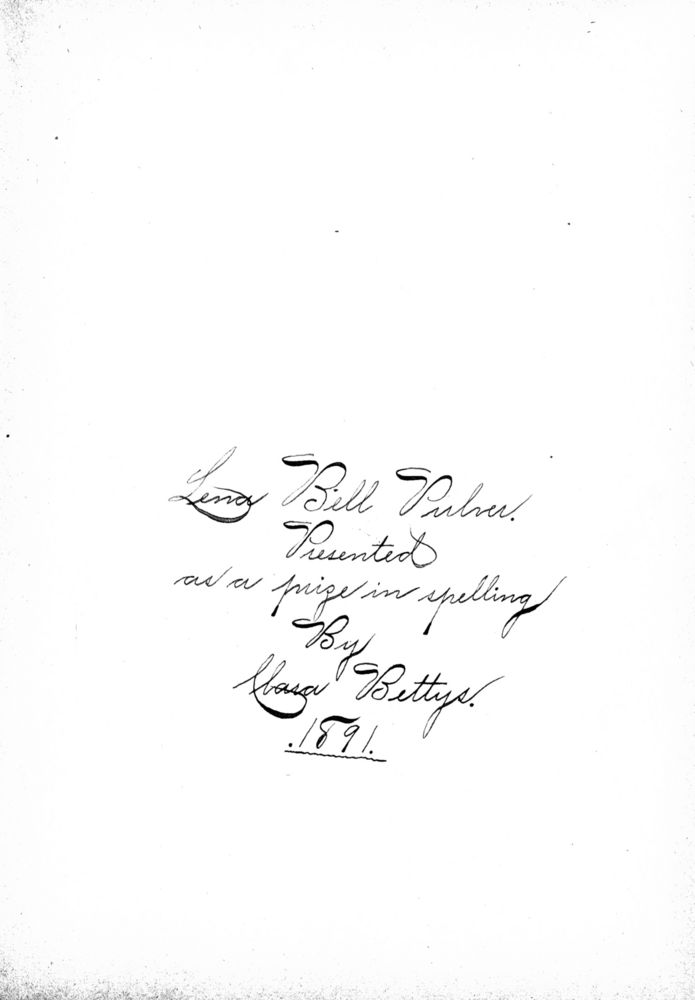 Lena Bell Pulver.
Presented
as a prize in spelling
By
Clara Bettys.
.1891.